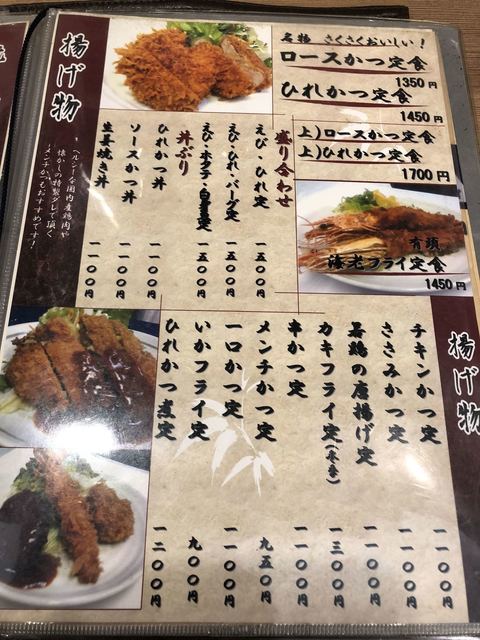 揚げ物
名物 さくさくおいしい!
ロースかつ定食
1350円
ひれかつ定食
1450円
上)ロースかつ定食
上)ひれかつ定食
1700円
有頭
海老フライ定食
1450円
盛り合わせ
えび・ひれ定 一五〇〇円
えび・ひれ・バーグ定 一五〇〇円
えび・ホタテ・白身定 一五〇〇円
丼ぶり
ひれかつ丼 一一〇〇円
ソースかつ丼 一一〇〇円
生姜焼き丼 一一〇〇円
ヘルシーな国内産鶏肉や
懐かしの特製ダレで頂く
メンチかつもおすすめです!
揚げ物
チキンかつ定 一一〇〇円
ささみかつ定 一一〇〇円
若鶏の唐揚げ定 一一〇〇円
カキフライ定 一三〇〇円
串かつ定 一一〇〇円
メンチかつ定 九五〇円
一口かつ定 一一〇〇円
いかフライ定 九〇〇円
ひれかつ煮定 一二〇〇円